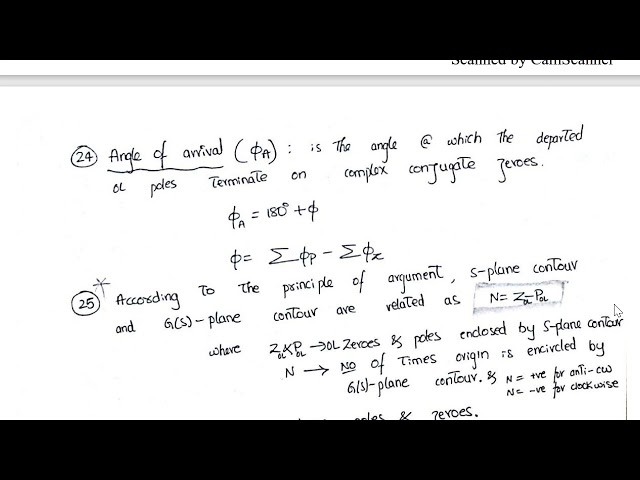 Scanned by CamScanner
24 Angle of arrival (ϕA) : is the angle @ which the departed
OL poles terminate on complex conjugate zeroes.
ϕA = 180° + ϕ
ϕ = ∑ϕp − ∑ϕz
* 25 According to the principle of argument, s-plane contour
and G(s)-plane contour are related as N = ZOL - POL
where ZOL & POL → OL zeroes & poles enclosed by S-plane contour
N → NO of times origin is encircled by
G(s)-plane contour. & N = +ve for anti-cw
N = -ve for clockwise
poles & zeroes.